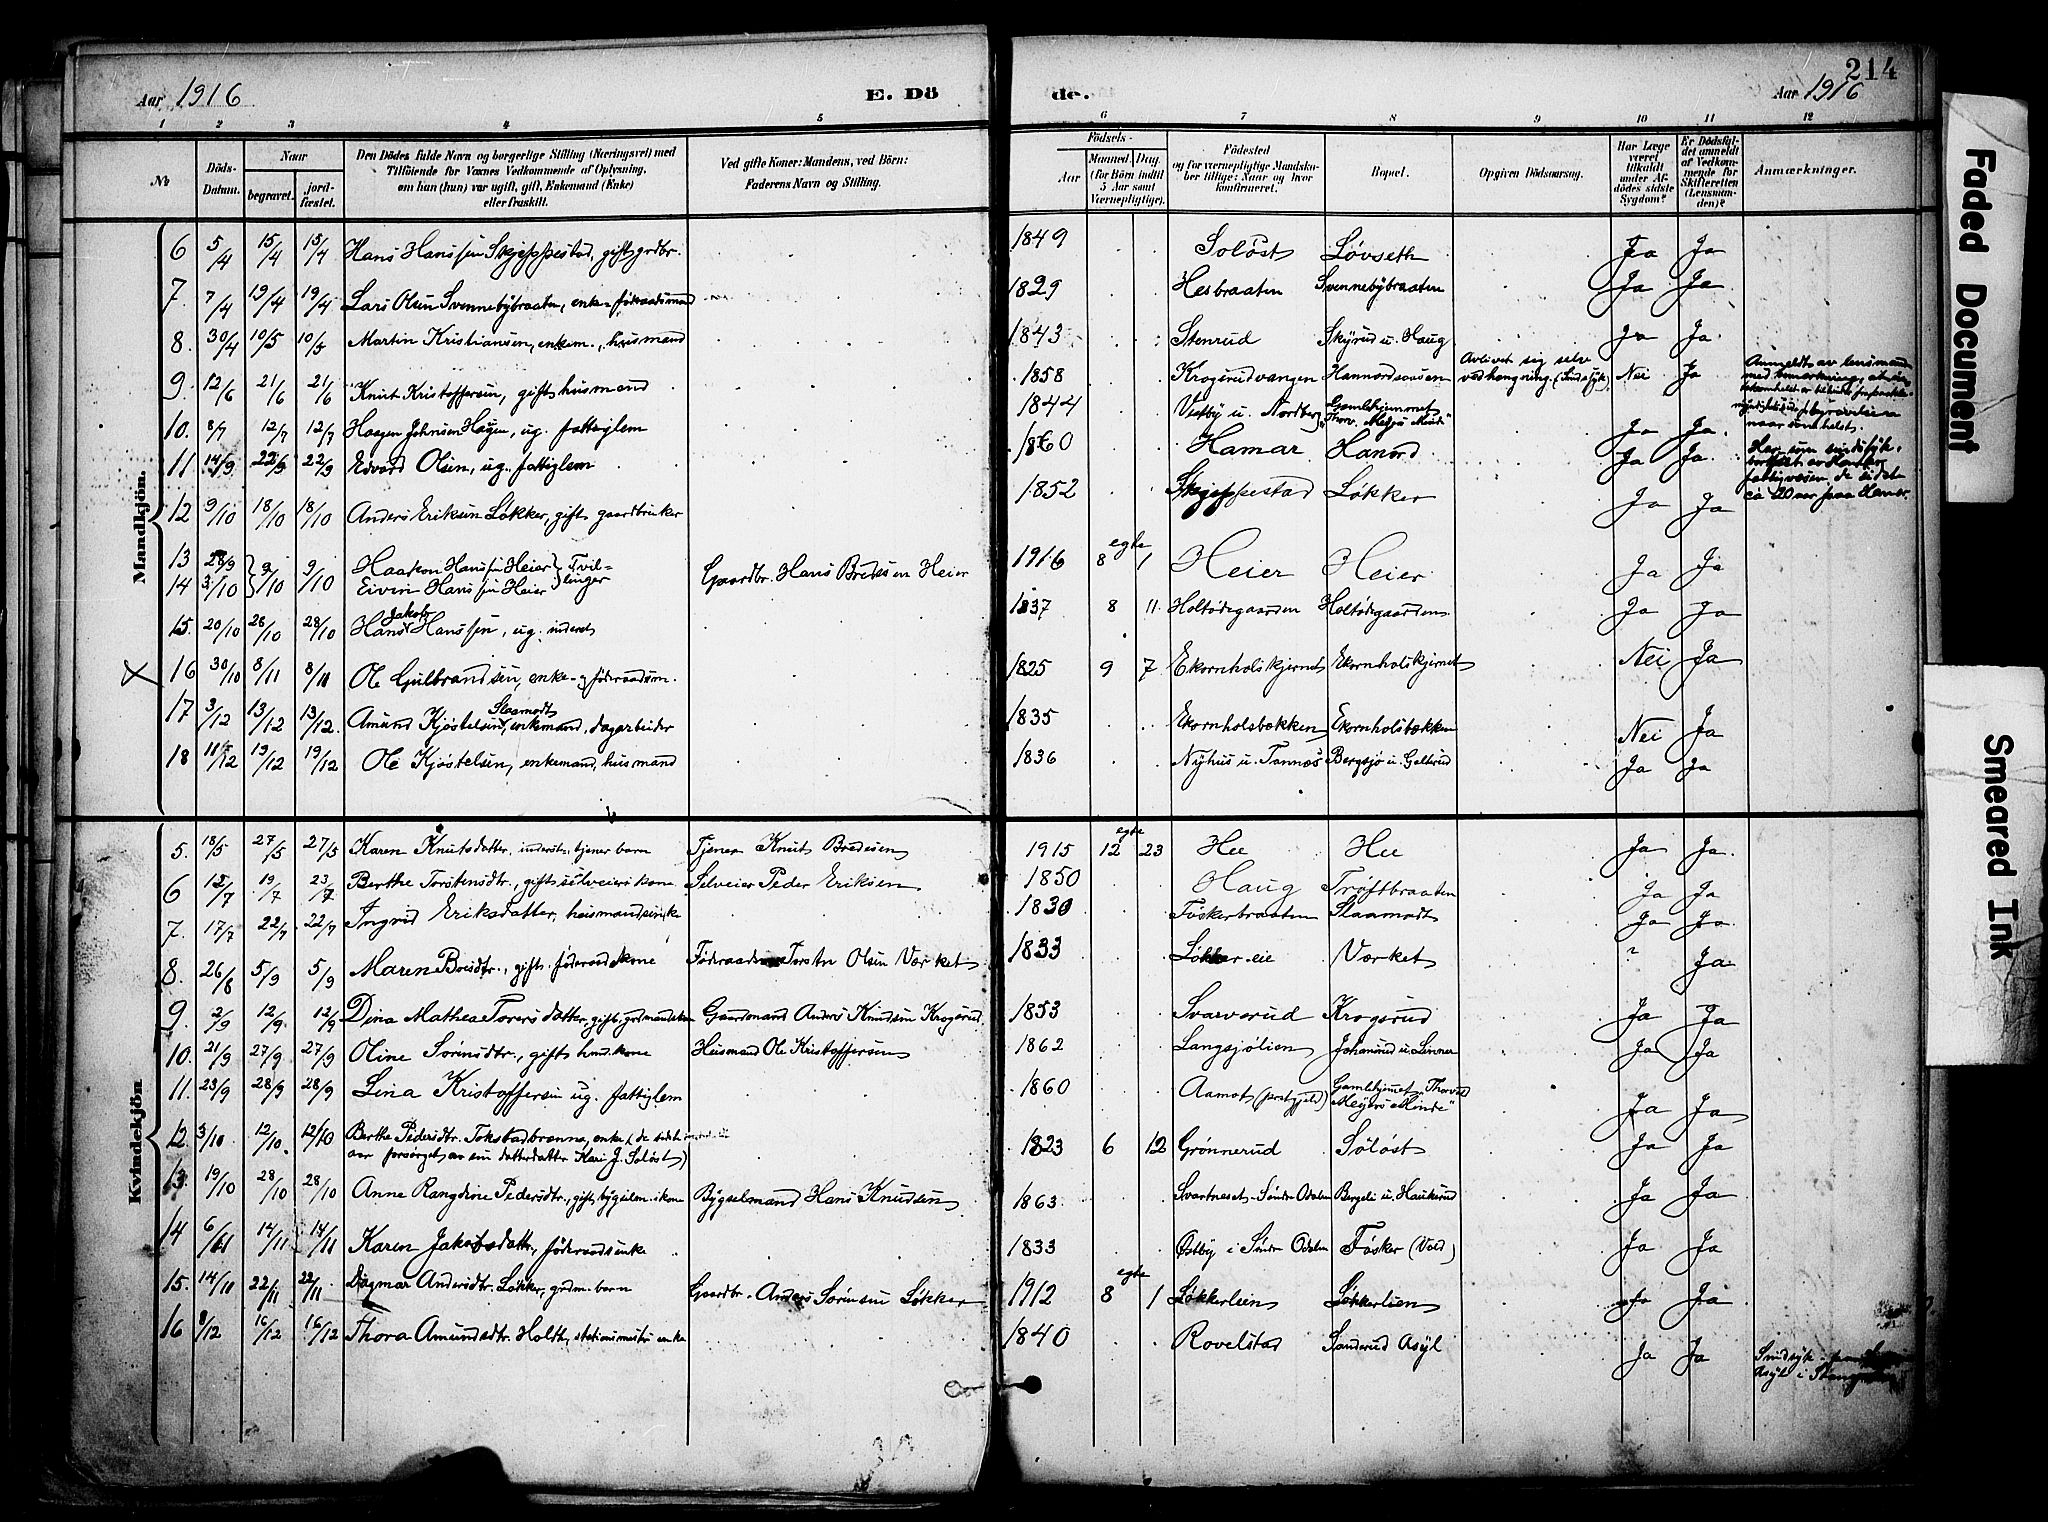 214
Aar 1916 E. Dö de. Aar 1916
1 2 3 4 5 6 7 8 9 10 11 12
№ Döds-Datum. Naar begravet. jordfæstet. Den Dödes fulde Navn og borgerlige Stilling (Næringsvei) med Tilföiende for Voxnes Vedkommende af Oplysning, om han (hun) var ugift, gift, Enkemand (Enke) eller fraskilt. Ved gifte Koner: Mandens, ved Börn: Faderens Navn og Stilling. Födsels- Aar Maaned. Dag. (for Börn indtil 5 Aar samt Værnepligtige). Födested og for værnepligtige Mandskaber tillige: Naar og hvor konfirmeret. Bopæl. Opgiven Dödsaarsag. Har Læge været tilkaldt under Afdödes sidste Sygdom? Er Dödsfaldet anmeldt af Vedkommende for Skifteretten (Lensmanden)? Anmærkninger.
Mandkjön.
6 5/4 15/4 15/4 Hans Hanssen Skjeppestad, gift grdbr. 1849 Soløst Løvseth Ja Ja
7 7/4 19/4 19/4 Lars Olsen Svennebybraaten, enke- føderaadsmand 1829 Hesbraaten Svennebybraaten Ja Ja
8. 30/4 10/5 10/5 Martin Kristiansen, enkem., husmand 1843 Stenrud Skyrud u. Haug Ja Ja
9. 12/6 21/6 21/6 Knut Kristoffersen, gift husmand 1858 Krogsrudvangen Avlivet sig selv ved hængning. (Sindssyk) Nei Ja Anmeldt av lensmand
10. 8/7 12/7 12/7 Haagen Johnsen Hagen, ug. fattiglem 1844 Vestby u. Nordberg Gamlehjemmet Thorv. Meyers Minde Ja Ja
11 14/9 22/9 22/9 Edvard Olsen, ug. fattiglem 1860 Hamar Hanord Ja Ja
12 9/10 18/10 18/10 Anders Eriksen Løkker, gift gaardbruker 1852 Skjeppestad Løkker Ja Ja
13 28/9 9/10 9/10 Haakon Hanssen Heier Tvil- 1916 8 egte 1 Heier Heier Ja Ja
14 3/10 Eivin Hanssen Heier linger Gaardbr. Hans Bredesen Heier
15. 20/10 26/10 28/10 Hans Jakob Hanssen, ug. inderst 1837 8 11 Holtødegaarden Holtødegaarden Ja Ja
16 30/10 8/11 8/11 Ole Gulbrandsen, enke- føderaadsm. 1825 9 7 Ekornholskjernet Ekornholskjernet Nei Ja
17 3/12 13/12 13/12. Amund Kjøstelsen Slaamodt, enkemand, dagarbeider 1835 Ekornholsbækken Ekornholsbækken Nei Ja
18 11/12 19/12 19/12 Ole Kjøstelsen, enkemand, husmand 1836 Nyhus u. Tannæs Bergsjø u. Galterud Ja Ja
Kvindekjön
5. 18/5 27/5 27/5 Karen Knutsdatter, tjener barn Tjener Knut Bredesen 1915 12 egte 23 Hee Hee Ja Ja.
6 12/7 19/7 23/7 Berthe Torstensdtr., gift selveierkone Selveier Peder Eriksen 1850 Haug Trøftbraaten Ja Ja
7. 17/7 22/7 22/7 Ingrid Eriksdatter, husmandsenke 1830 Føskerbraaten Slaamodt Ja Ja.
8. 26/8 5/9 5/9 Maren Boesdtr., gift. føderaadskone Torsten Olsen Værket 1833 Løkker-eie Værket ? Ja
9. 2/9 12/9 12/9 Dina Mathea Toresdatter, gift, grdmandskone Gaardmand Anders Knudsen Krogsrud. 1853 Svarverud Krogsrud Ja Ja
10. 21/9 27/9 27/9 Oline Sørensdtr., gift hmd.kone Husmand Ole Kristoffersen 1862 Langsjølien Johansrud u. Linner Ja Ja
11. 23/9 28/9 28/9 Lina Kristoffersen ug. fattiglem 1860 Aamot (prestgjeld) Gamlehjemmet "Thorvald Meyers Minde" Ja Ja
12. 3/10 12/10. 12/10 Berthe Pedersdtr. Tokstadbrænna, enke, (de sidste
aar forsørget av sin datterdatter Kari J. Soløst) 1823 6 12 Grønnerud Soløst Ja Ja
13. 19/10 28/10 28/10 Anne Rangdine Pedersdtr., gift, bygselm.kone Bygselmand Hans Knudsen 1863 Svartneset - Søndr Odalen Bergeli u. Haukerud Ja Ja
14 6/11 14/11 14/11 Karen Jakobsdatter, føderaadsenke 1833 Østby i Søndr Odalen Føsker (Vold) Ja Ja
15. 14/11 22/11 22/11. Dagmar Andersdtr. Løkker, grdm. barn Gaardbr. Anders Sørensen Løkker 1912 8 egte 1 Løkkerlien Løkkerlien Ja Ja
16 8/12 16/12 16/12 Thora Amundsdtr. Holth, stationsmester enke 1840 Rovelstad Sanderud Asyl Ja Ja Sindssyk
Asyl i Stange
Faded Document
Smeared Ink